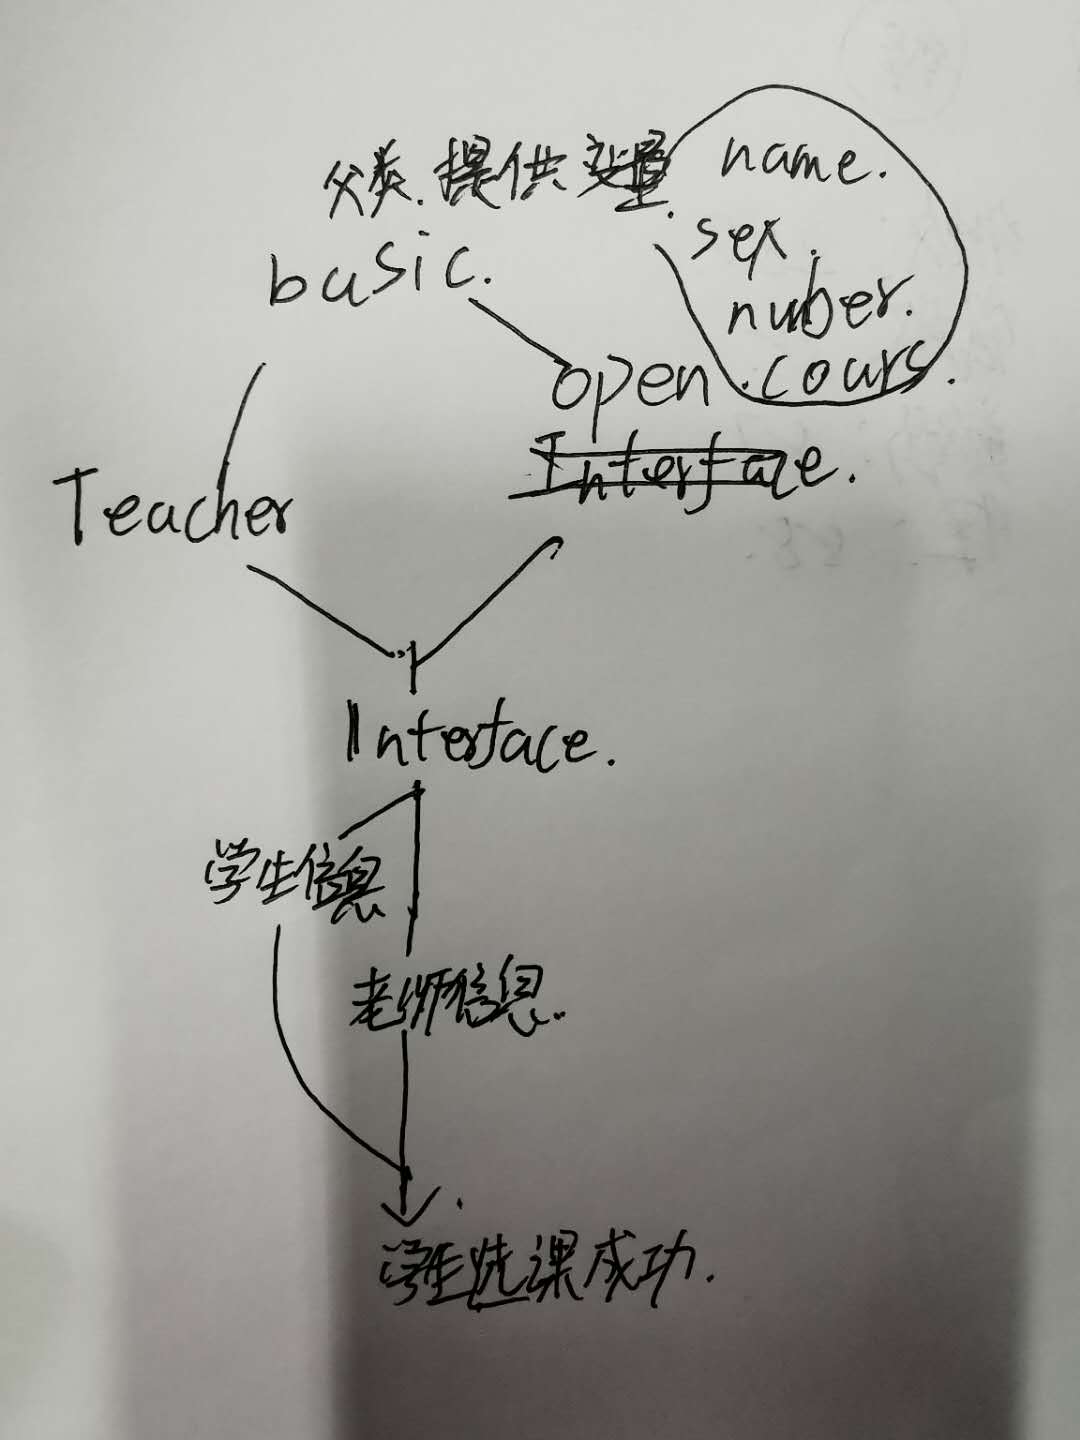 父类.提供变量.
name.
sex.
nuber.
.cours.
basic.
open
Interface.
Teacher
Interface.
学生信息
老师信息..
学生选课成功.